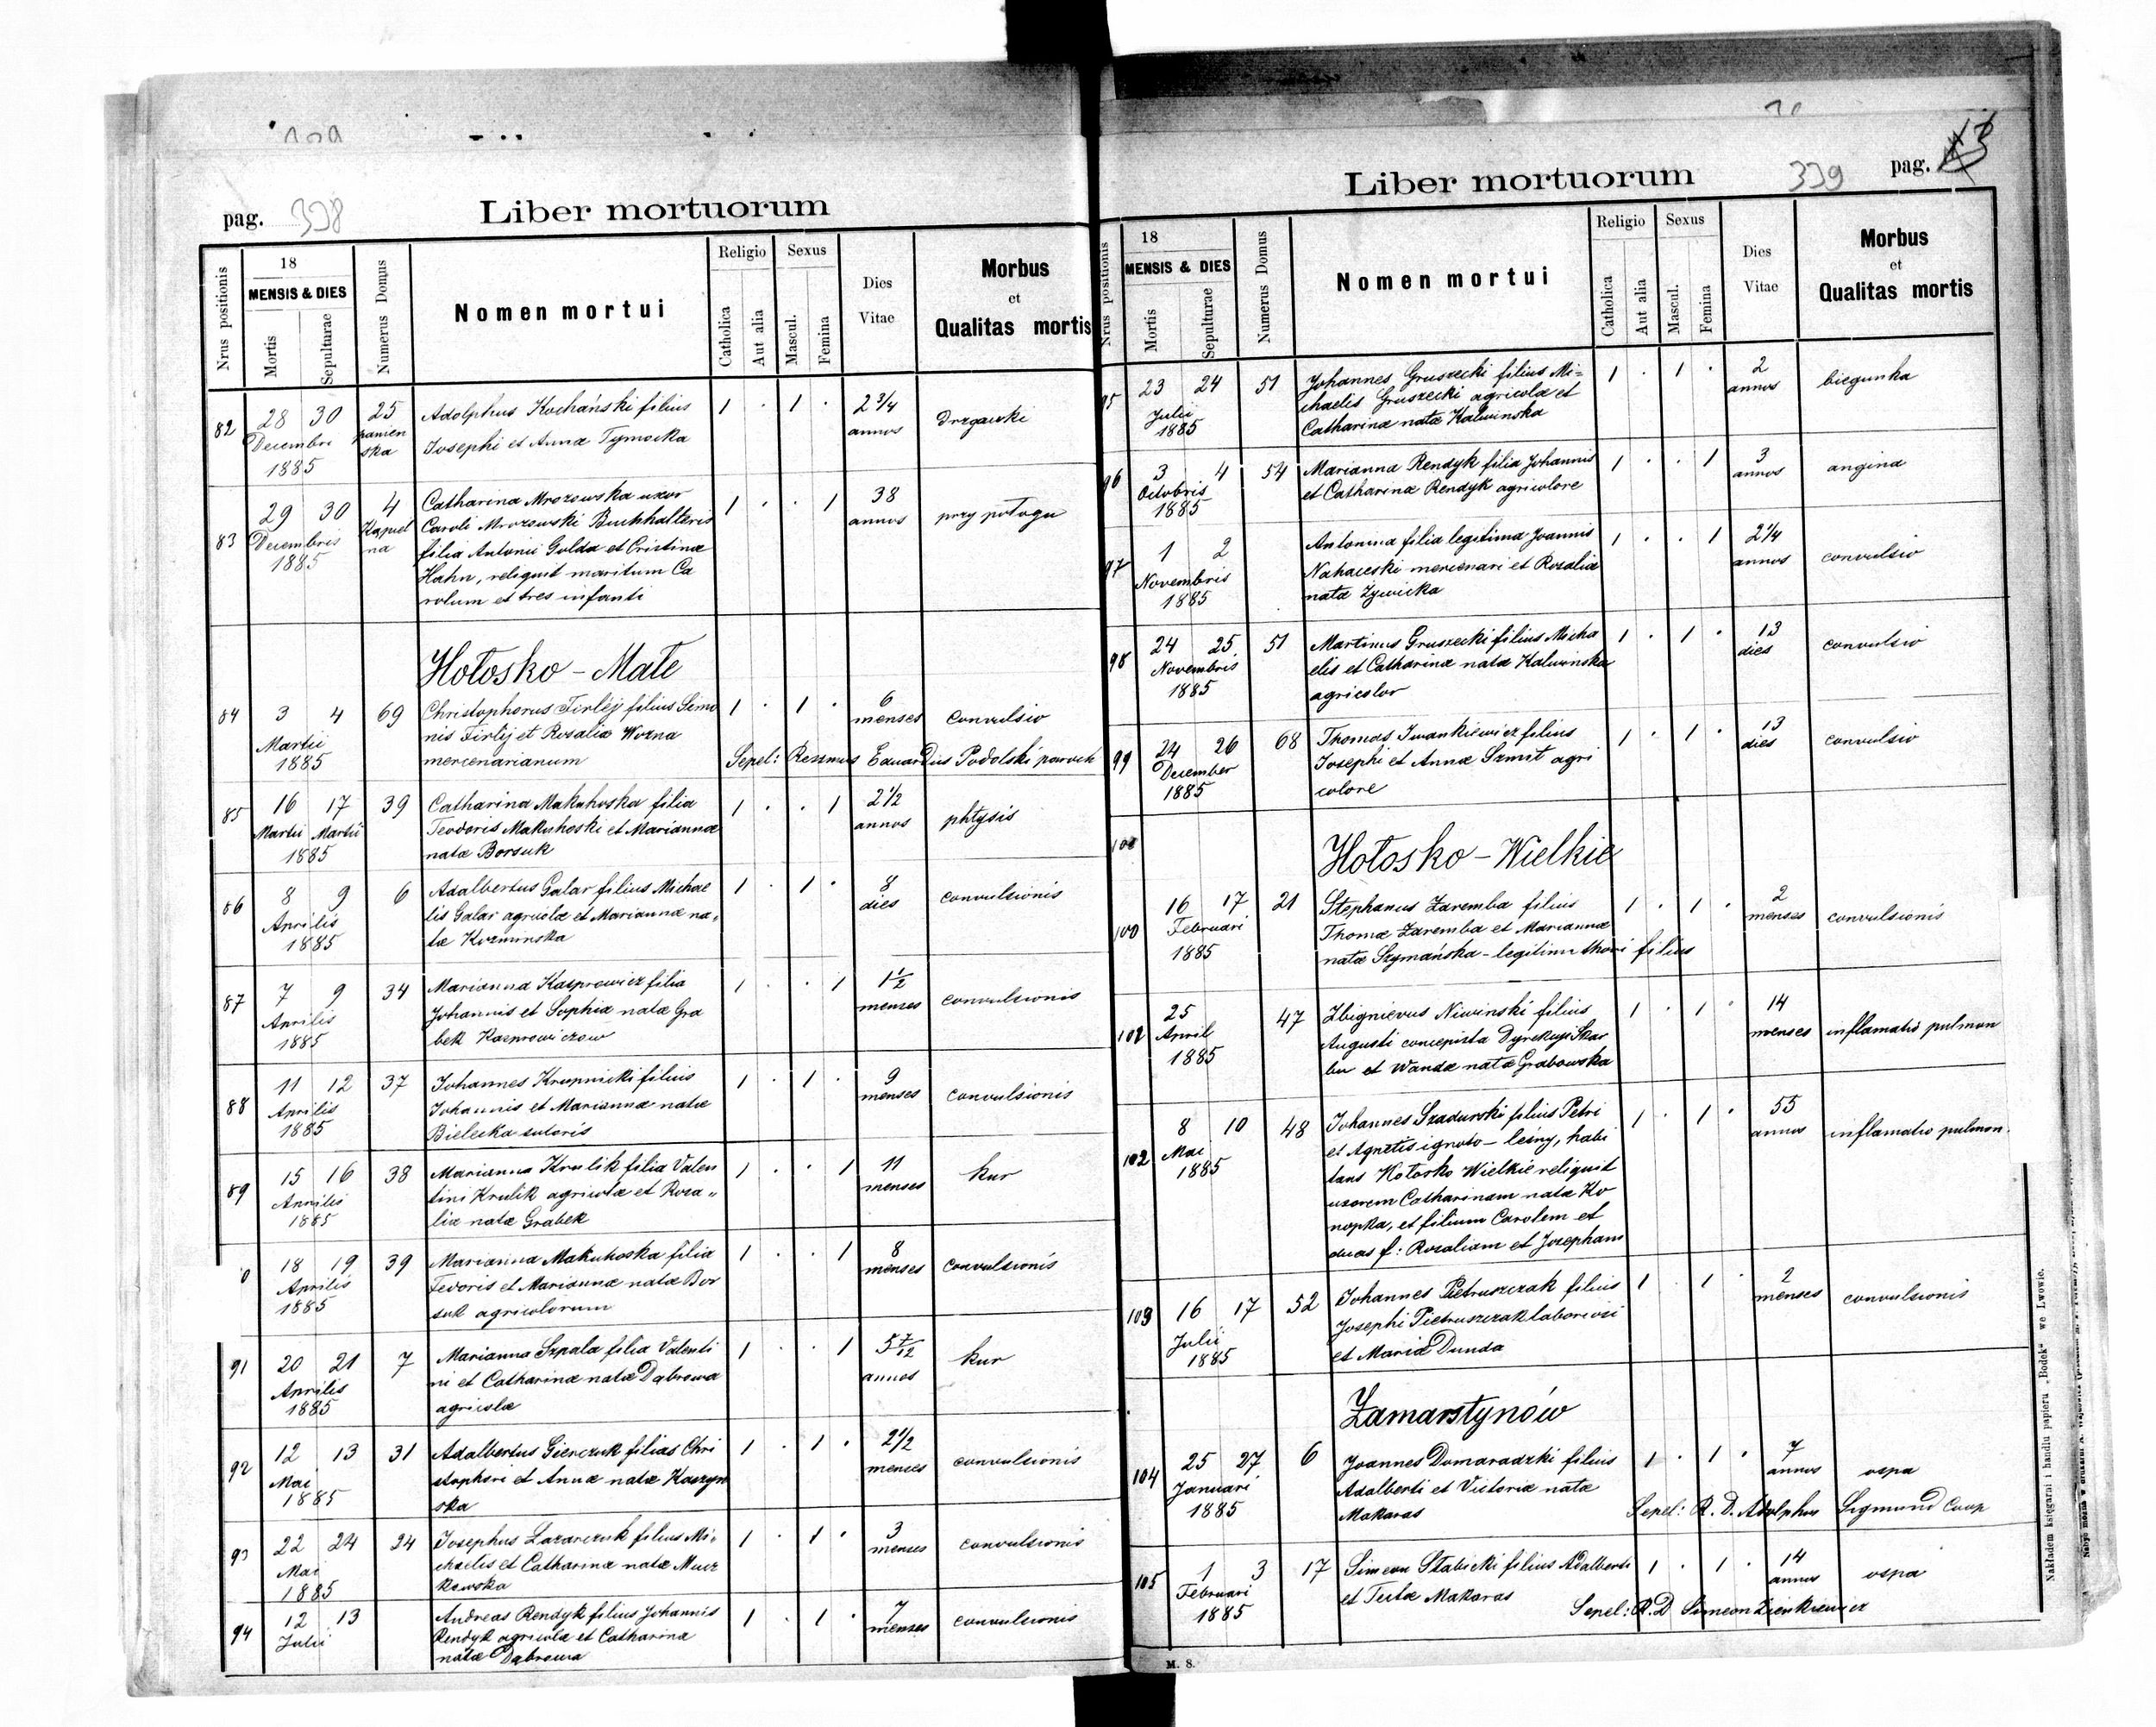 pag. 338
Liber mortuorum
Nrus positionis
18
MENSIS & DIES
Mortis
Sepulturae
Numerus Domus
Nomen mortui
Religio
Catholica
Aut alia
Sexus
Mascul.
Femina
Dies
Vitae
Morbus
et
Qualitas mortis
82 28 30 25 Adolphus Kochański filius 1 . 1 . 2 3/4 Drzgawki
Decembri panien Josephi et Anna Tymocka annos
1885 ska
83 29 30 4 Catharina Mrozowska uxor 1 . . 1 38 przy połogu
Decembris Kąpiel Caroli Mrozowski Buchhalteris annos
1885 na filia Antonii Golda et Cristinæ
Hahn, reliquit maritum Ca
rolum et tres infanti
Hołosko - Małe
84 3 4 69 Christophorus Firlej filius Simo 1 . 1 . 6 Convulsio
Martii nis Firlij et Rosalia Wozna menses
1885 mercenarianum Sepel: Eduardius Podolski
85 16 17 39 Catharina Makuhoska filia 1 . . 1 2 1/2 phtysis
Martii Martii Teodoris Makuhoski et Mariannæ annos
1885 natæ Borsuk
86 8 9 6 Adalbertus Galar filius Michae 1 . 1 . 8 convulsionis
Aprilis lis Galar agricolæ et Mariannæ na„ dies
1885 tæ Kozminska
87 7 9 34 Marianna Kasprowicz filia 1 . . 1 1 1/2 convulsionis
Aprilis Johannis et Sophiæ natæ Gra menses
1885 bek
88 11 12 37 Johannes Krupnicki filius 1 . 1 . 9 convulsionis
Aprilis Johannis et Mariannæ natæ menses
1885 Bielecka sutoris
89 15 16 38 Marianna Krulik filia Valen 1 . . 1 11 kur
Aprilis tini Krulik agricolæ et Roza„ menses
1885 liæ natæ Grabek
0 18 19 39 Marianna Makuhoska filia 1 . . 1 8 convulsionis
Aprilis Tedoris et Mariannæ natæ Bor menses
1885 suk agricolorum
91 20 21 7 Marianna Szpala filia Valenti 1 . . 1 5 7/12 kur
Aprilis ni et Catharinæ natæ Dąbrowa annos
1885 agricolæ
92 12 13 31 Adalbertus Gienczuk filius Chri 1 . 1 . 2 1/2 convulsionis
Mai stophori et Annæ natæ Kaszyn menses
1885 ska
93 22 24 24 Josephus Lazarczuk filius Mi„ 1 . 1 . 3 convulsionis
Mai chaelis et Catharinæ natæ menses
1885
94 12 13 Andreas Rendyk filius Johannis 1 . 1 . 7 convulsionis
Julii Rendyk agricolæ et Catharinæ menses
natæ Dąbrowa
Liber mortuorum
339
pag.
Nrus positionis
18
MENSIS & DIES
Mortis
Sepulturae
Numerus Domus
Nomen mortui
Religio
Catholica
Aut alia
Sexus
Mascul.
Femina
Dies
Vitae
Morbus
et
Qualitas mortis
95 23 24 51 Johannes Gruszecki filius Mi= 1 . 1 . 2 biegunka
Julii chaelis Gruszecki agricolæ et annos
1885 Catharinæ natæ Kalwinska
96 3 4 54 Marianna Rendyk filia Johannis 1 . . 1 3 angina
Octobris et Catharinæ Rendyk agricolore annos
1885
97 1 2 Antonina filia legitima Joannis 1 . . 1 2 1/4 convulsio
Novembris mercenari et Rozaliæ annos
1885 nata Zywicka
98 24 25. 51 Martinus Gruszecki filius Micha 1 . 1 . 13 convulsio
Novembris elis et Catharinæ nata Kalwinska dies
1885 agricolor
99 24 26 68 Thomas Iwankiewicz filius 1 . 1 . 13 convulsio
December Josephi et Annæ Szmit agri dies
1885 colore
Hołosko - Wielkie
100 16 17 21 Stephanus Zaremba filius 1 . 1 . 2 convulsionis
Februari Thomæ Zaremba et Mariannæ menses
1885 natæ Szymańska - legitimi thori filius
102 25 47 Zbignievus Niwinski filius 1 . 1 . 14 inflamatio pulmon
April Augusti concepista Dyrekcyi Skar menses
1885 bu et Wandæ natæ Grabowska
102 8 10 48 Johannes Szadurski filius Petri 1 . 1 . 55 inflamatio pulmon.
Mai et Agnetis ignoto - leśny, habi annos
1885 tans Hołosko Wielkie reliquit
uxorem Catharinam natæ Ko
nopka, et filium Carolem et
duas f: Rozaliam et Josepham
103 16 17 52 Johannes Pietruszczak filius 1 . 1 . 2 convulsionis
Julii Josephi Pietruszczak laboriosi menses
1885 et Mariæ Dunda
Zamarstynów
104 25 27 6 Joannes Domaradzki filius 1 . 1 . 7 ospa
Januari Adalberti et Victoriæ natæ annos
1885 Makaras Sepel: R. D. Adolphus Sigmund Coop
105 1 3 17 Simeon Stabicki filius Adalberti 1 . 1 . 14 ospa
Februari et Teklæ Makaras annos
1885 Sepel: R. D Simeon Zienkiewicz
M. 8.
Nakładem księgarni i handlu papieru „Bodek“ we Lwowie.